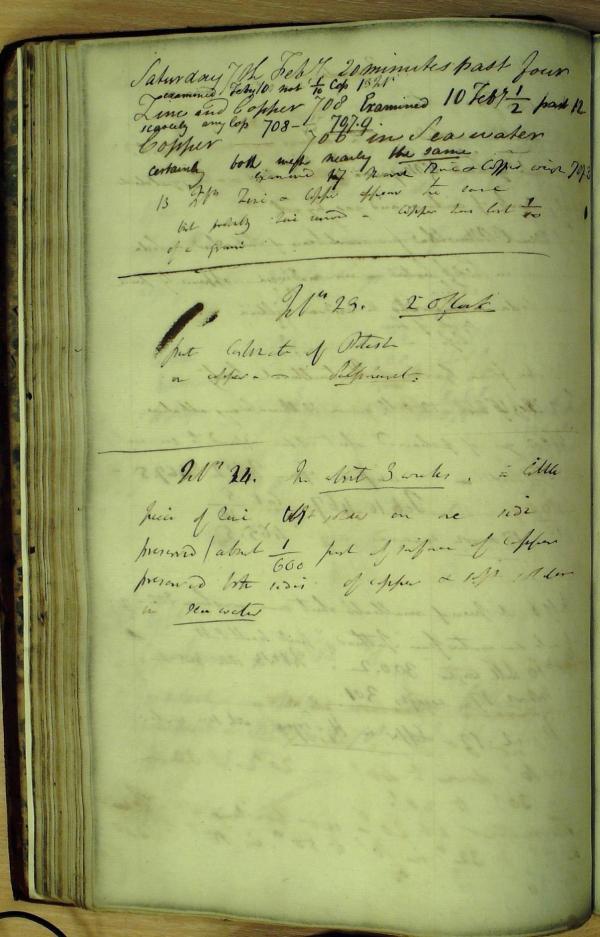 Saturday 7th Feby 20 minutes past four
examined Feby 10 not 1/10 Cop
Zinc and Copper 708 Examined 10 Feby 1/2 past 12
scarcely any Cop 708 - 707.9
Copper 706 in Sea water
certainly both wires nearly the same
examined Zinc & Copper
13 Feby Zinc & Copper appear the same
but probably Zinc & Copper has lost 1/10
of a grain
Feby 23. 2 o'Clock
put Carbonate of Potash
on copper
Feby 24. In about 3 weeks, a little
piece of Zinc, on one side
preserved / about 1/600 part of surface of copper
preserved both sides of copper &
in sea water